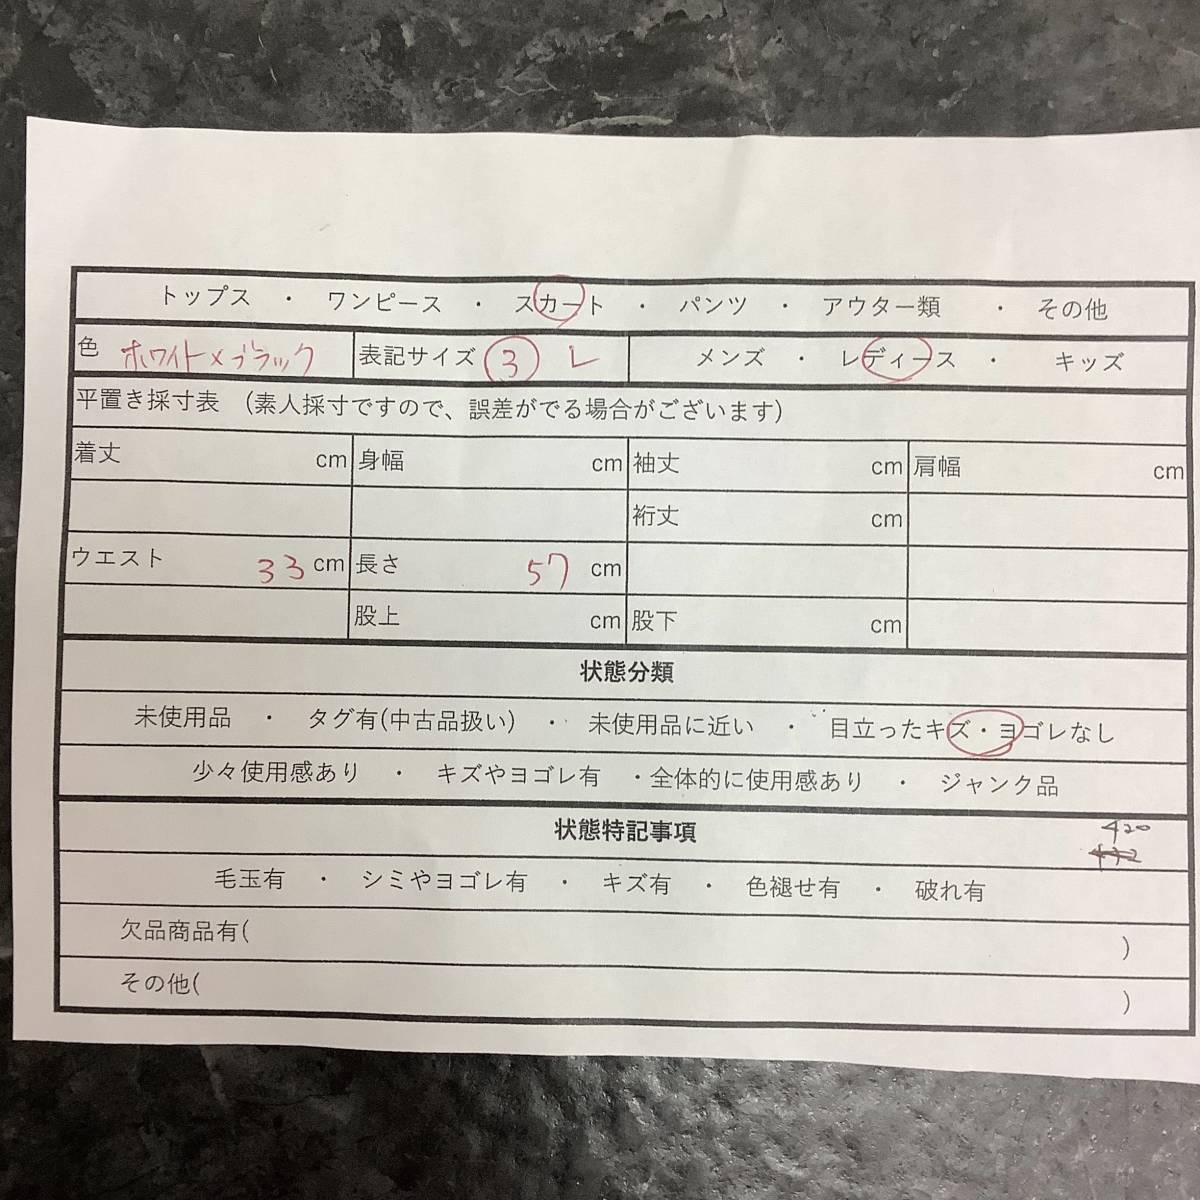 トップス ・ ワンピース ・ スカート ・ パンツ ・ アウター類 ・ その他
色 ホワイト×ブラック 表記サイズ ③ L メンズ ・ レディース ・ キッズ
平置き採寸表 (素人採寸ですので、誤差がでる場合がございます)
着丈 cm 身幅 cm 袖丈 cm 肩幅 cm
裄丈 cm
ウエスト 33 cm 長さ 57 cm
股上 cm 股下 cm
状態分類
未使用品 ・ タグ有(中古品扱い) ・ 未使用品に近い ・ 目立ったキズ・ヨゴレなし
少々使用感あり ・ キズやヨゴレ有 ・全体的に使用感あり ・ ジャンク品
状態特記事項 420
毛玉有 ・ シミやヨゴレ有 ・ キズ有 ・ 色褪せ有 ・ 破れ有
欠品商品有( )
その他( )